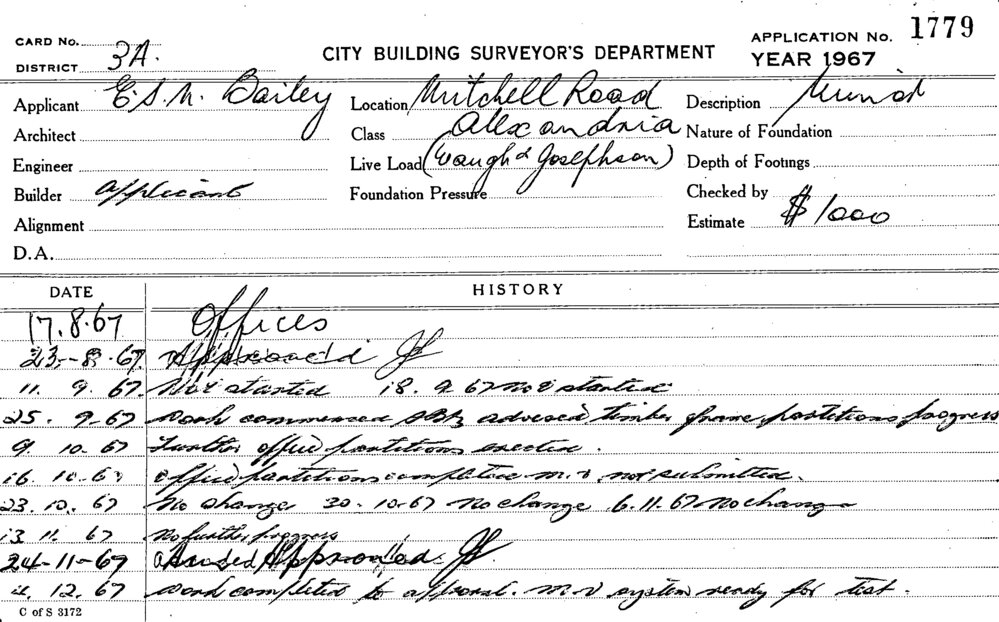 CARD No.
DISTRICT 3A.
CITY BUILDING SURVEYOR'S DEPARTMENT
APPLICATION No. 1779
YEAR 1967
Applicant E.S.N. Bailey
Location Mitchell Road
Description Minor
Architect
Class Alexandria
Nature of Foundation
Engineer
Live Load (Waugh & Josephson)
Depth of Footings
Builder applicant
Foundation Pressure
Checked by
Alignment
Estimate $1000
D.A.
DATE HISTORY
17.8.67 Offices
23.-8-67. Approved
11. 9. 67. Not started 18. 9 67 Not started
25. 9-67 Work commenced advised timber frame partitions progress
9. 10. 67 Further office partitions erected.
16. 10. 67 office partitions completed M.V. not submitted.
23. 10. 67 No change 30-10-67 No change 6.11.67 No change
13 11. 67 No further progress
24-11-67 Amended Approved
4. 12. 67 Work completed to approval. M.V. system ready for test.
C of S 3172